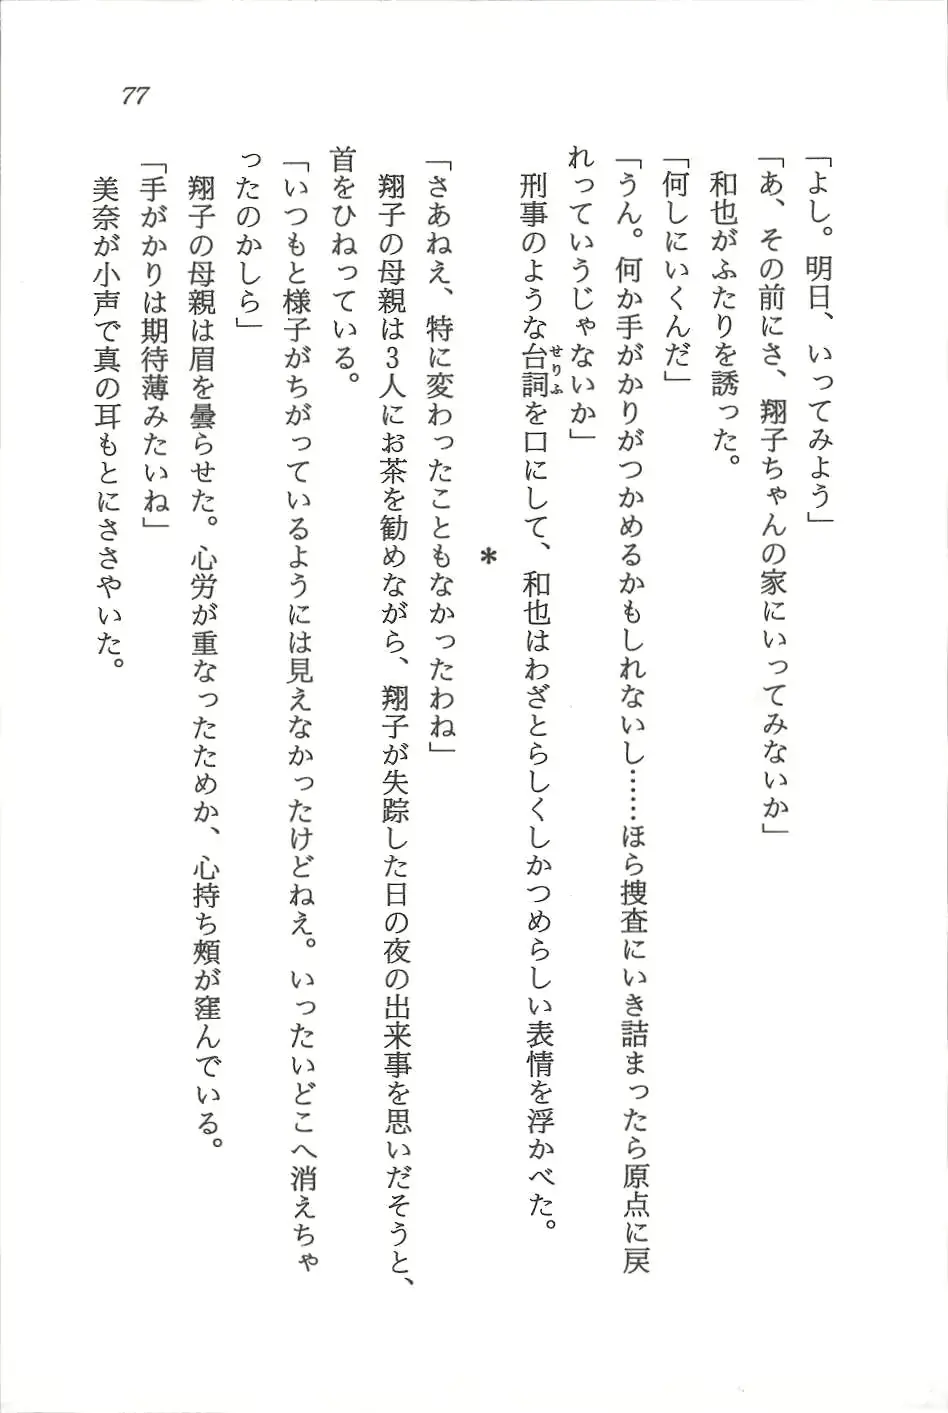 77
「よし。明日、いってみよう」
「あ、その前にさ、翔子ちゃんの家にいってみないか」
和也がふたりを誘った。
「何しにいくんだ」
「うん。何か手がかりがつかめるかもしれないし……ほら捜査にいき詰まったら原点に戻
れっていうじゃないか」
刑事のような台詞を口にして、和也はわざとらしくしかつめらしい表情を浮かべた。
せりふ
*
「さあねえ、特に変わったこともなかったわね」
翔子の母親は3人にお茶を勧めながら、翔子が失踪した日の夜の出来事を思いだそうと、
首をひねっている。
「いつもと様子がちがっているようには見えなかったけどねえ。いったいどこへ消えちゃ
ったのかしら」
翔子の母親は眉を曇らせた。心労が重なったためか、心持ち頰が窪んでいる。
「手がかりは期待薄みたいね」
美奈が小声で真の耳もとにささやいた。